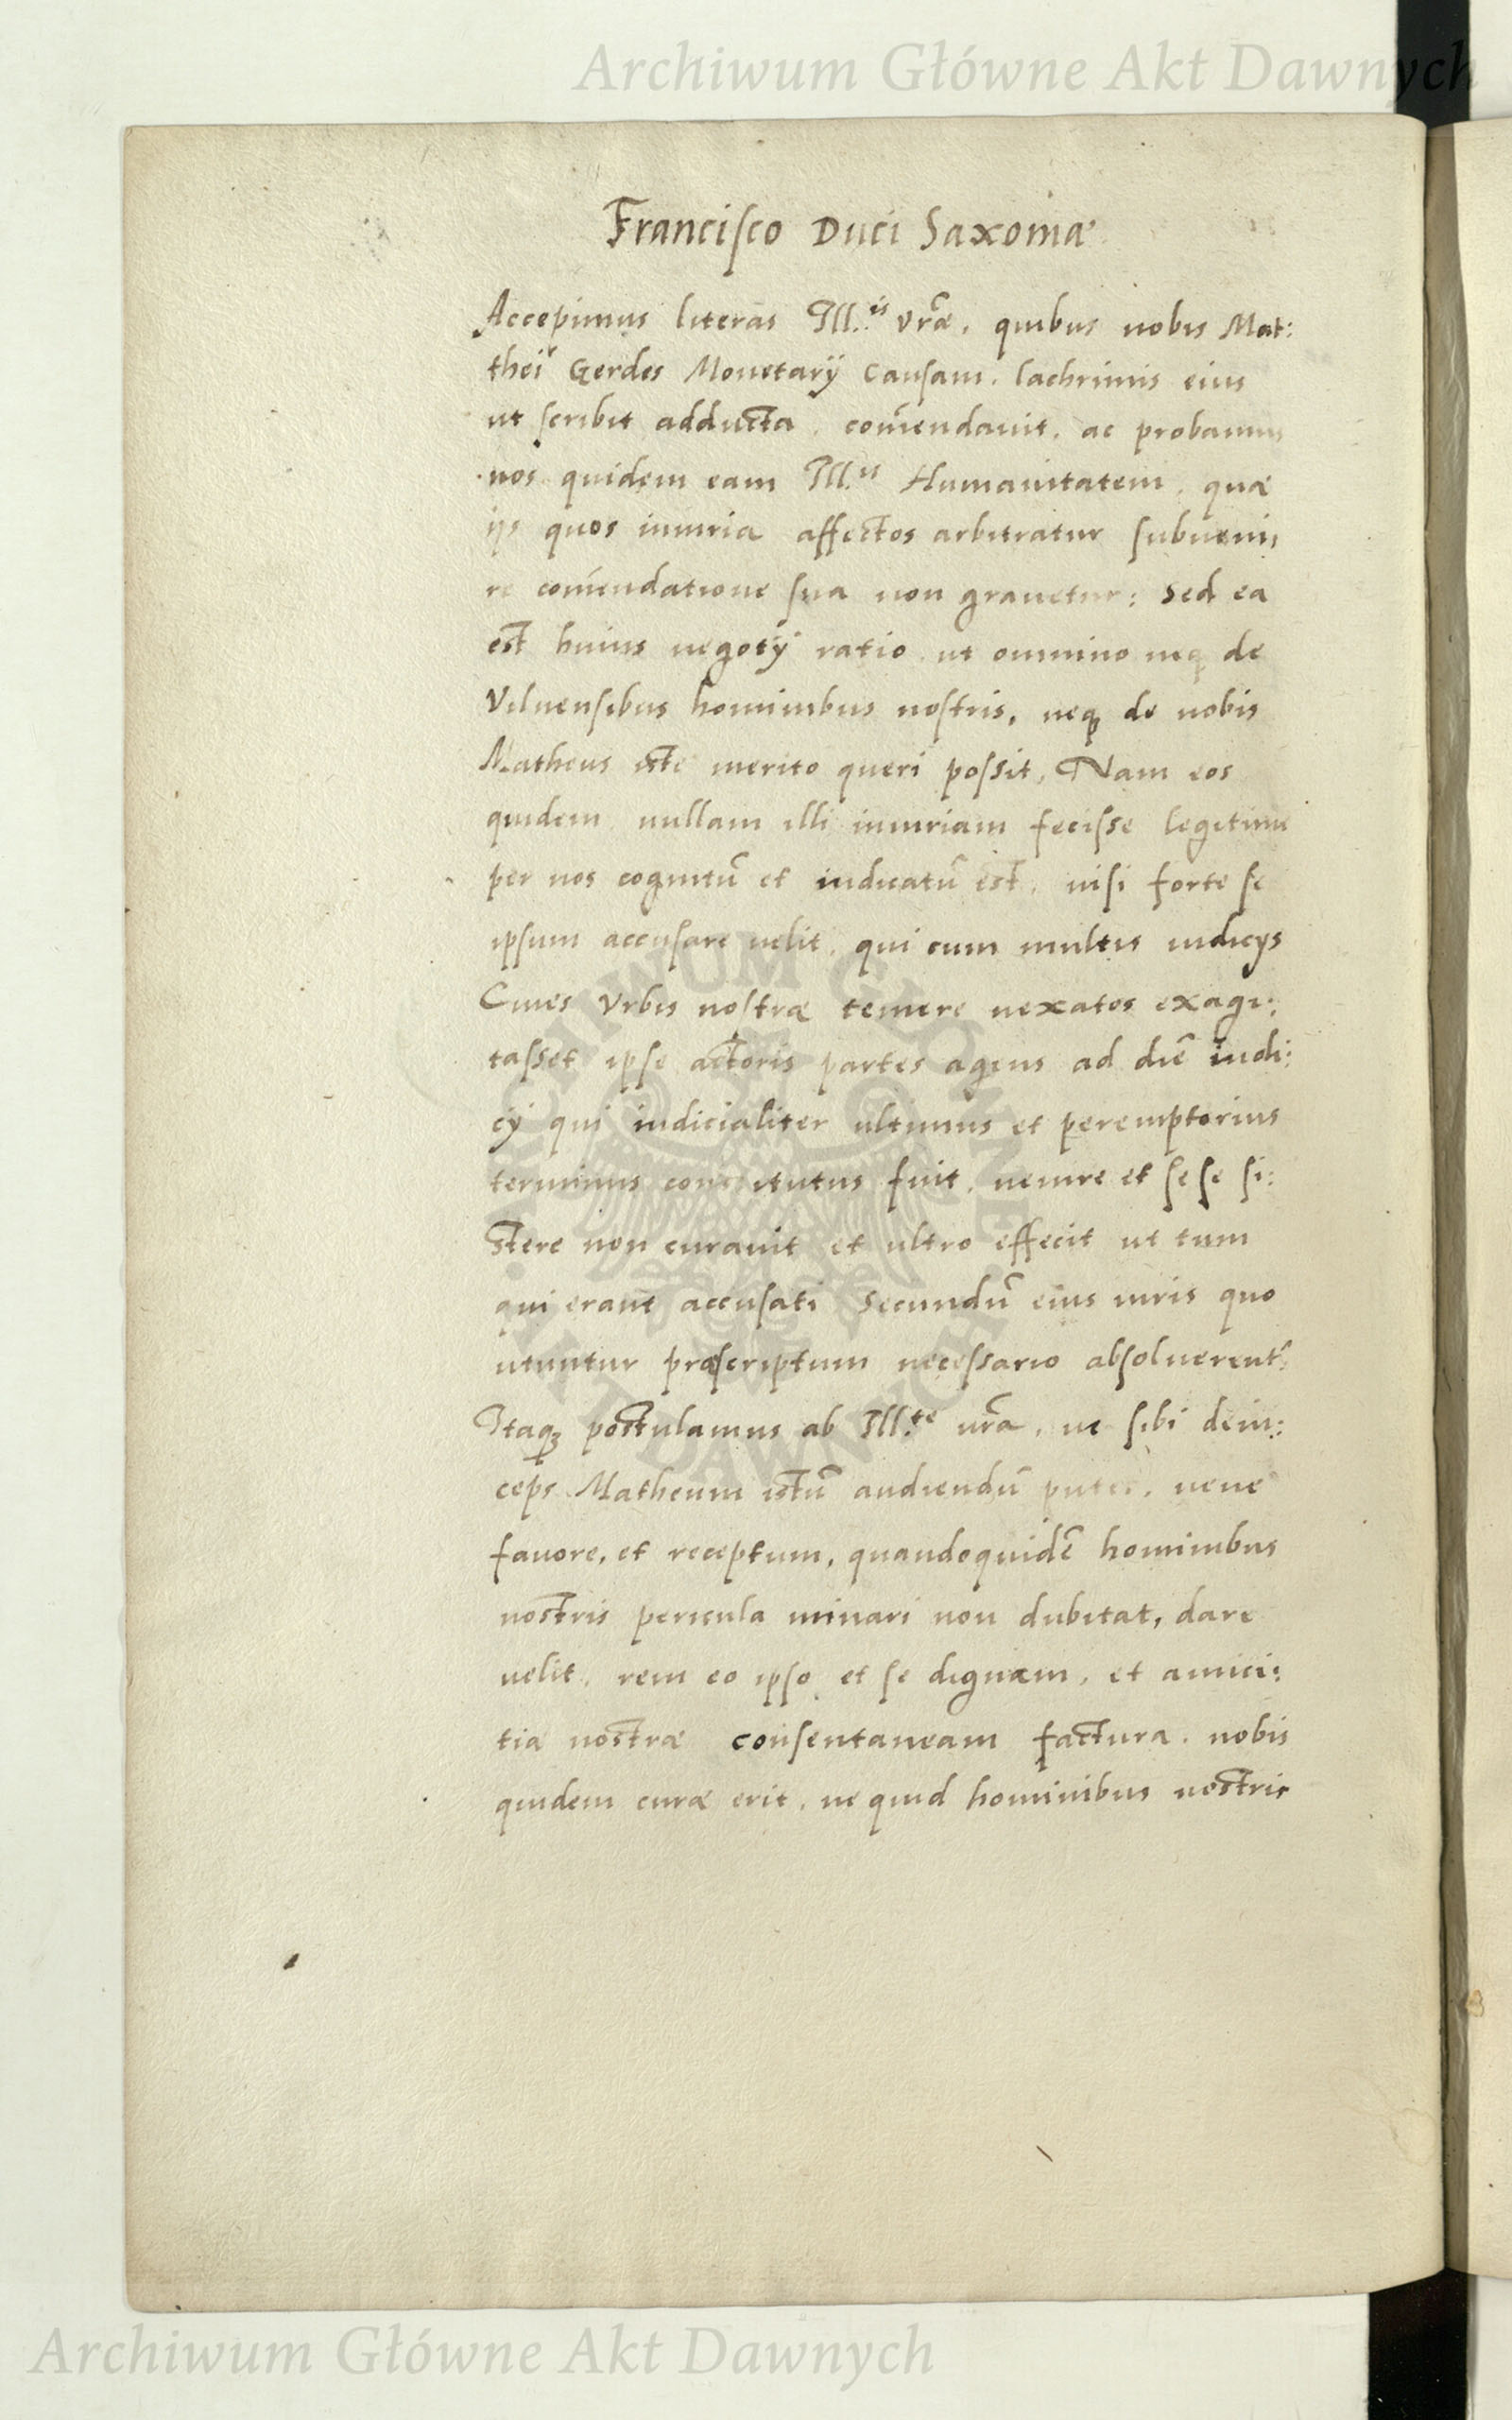 Archiwum Główne Akt Dawnych
Francisco Duci Saxoniæ
Accepimus literas Ill.is vrãe, quibus nobis Mat:
thei Gerdes Monetarij Causam, lachrimis eius
ut scribit adducta, com̃endauit, ac probamus
nos quidem eam Ill.is Humanitatem, quæ
ijs quos iniuria affectos arbitratur subueni
re com̃endatione sua non grauetur: Sed ea
est huius negotij ratio ut omnino neq de
Vilnensibus hominibus nostris, neq de nobis
Matheus iste merito queri possit, Nam eos
quidem nullam illi iniuriam fecisse legitime
per nos cognitũ et iudicatũ est, nisi forte se
ipsum accusare uelit, qui cum multis iudicijs
Ciues Vrbis nostræ temere uexatos exagi:
tasset ipse actoris partes agens ad diẽ iudi:
cij qui iudicialiter ultimus et peremptorius
terminus constitutus fuit, uenire et sese si:
stere non curauit et ultro effecit ut tum
qui erant accusati Secundũ eius iuris quo
utuntur præscriptum necessario absoluerent:
Itaq postulamus ab Ill.te vrã, ne sibi dein:
ceps Matheum istũ audiendũ putet, neue
fauore, et receptum, quandoquidẽ hominibus
nostris pericula minari non dubitat, dare
uelit, rem eo ipso et se dignam, et amici:
tiæ nostræ consentaneam factura. nobis
quidem curæ erit, ne quid hominibus nostris
ARCHIWUM GŁÓWNE AKT DAWNYCH
Archiwum Główne Akt Dawnych